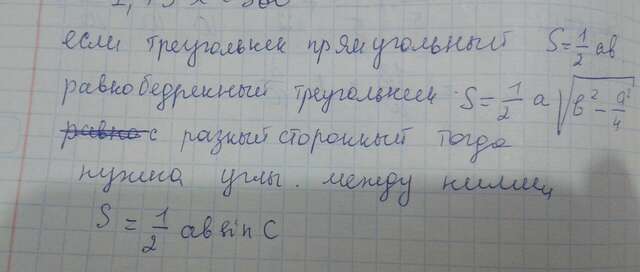 если треугольнек прямугольный S=1/2 ав
равнобедренный треугольнеек S=1/2 a√(в²-a²/4)
с разный сторонный тогда
нужна углы. между
S = 1/2 ab sin C